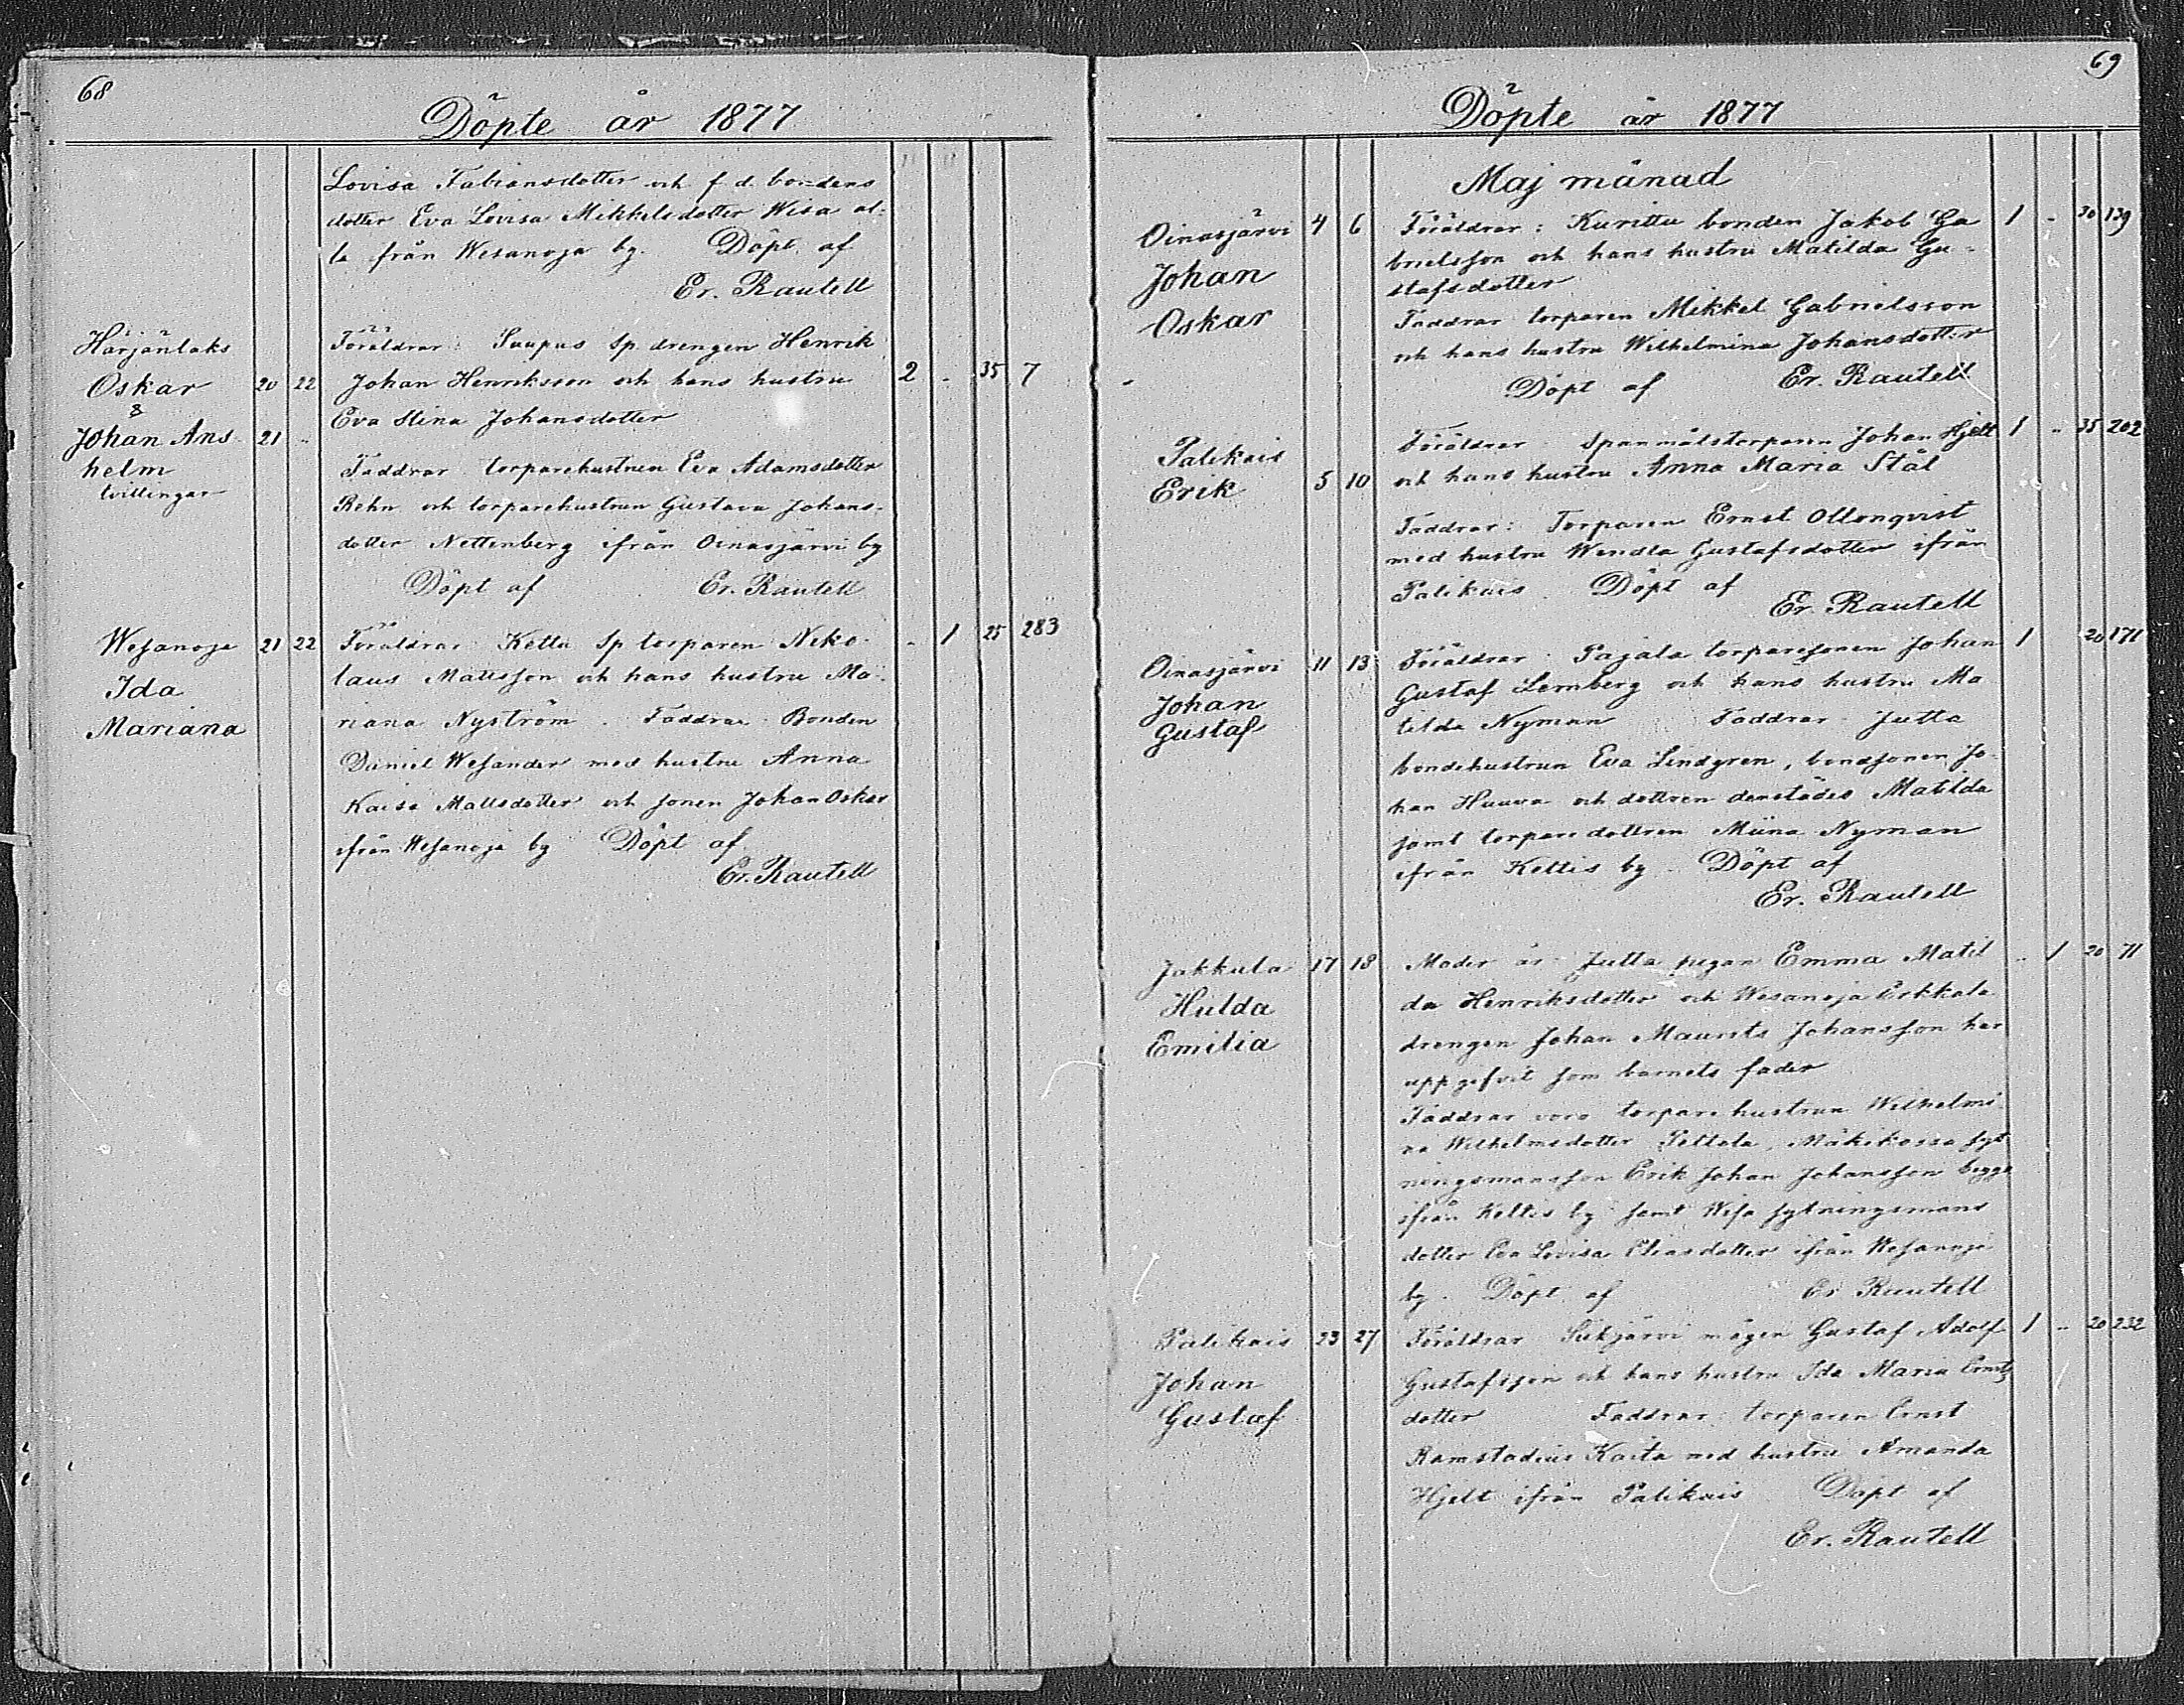 68
Döpte år 1877
Lovisa Fabiansdotter och f. d. bondens
dotter Eva Lovisa Mikkelsdotter Wisa al-
la från Wesanoja by. Döpt af
Er. Rautell
Härjänlaks Föräldrar: Suupus Sp. drengen Henrik
Oskar 20 22 Johan Henriksson och hans hustru 2 - 35 7
& Eva Stina Johansdotter
Johan Ans- 21 -
helm Faddrar torparehustrun Eva Adamsdotter
tvillingar Rehn och torparehustrun Gustava Johans-
dotter Nettenberg ifrån Oinasjärvi by
Döpt af Er. Rautell
Wesanoja 21 22 Föräldrar: Kettu Sp torparen Niko- - 1 25 283
Ida laus Mattsson och hans hustru Ma-
Mariana riana Nyström. Faddrar Bonden
Daniel Wesander med hustru Anna
Kaisa Mattsdotter och sonen Johan Oskar
ifrån Wesanoja by Döpt af
Er. Rautell
69
Döpte år 1877
Maj månad
Oinasjärvi 4 6 Föräldrar: Kurittu bonden Jakob Ga 1 - 30 139
Johan brielsson och hans hustru Matilda Gu-
stafsdotter
Oskar Faddrar torparen Mikkel Gabrielsson
och hans hustru Wilhelmina Johansdotter
Döpt af Er. Rautell
Palikais Föräldrar Spanmålstorparen Johan Hjelt 1 - 35 202
Erik 5 10 och hans hustru Anna Maria Stål
Faddrar: Torparen Ernst Ollonqvist
med hustru Wendla Gustafsdotter ifrån
Palikais. Döpt af
Er. Rautell
Oinasjärvi 11 13 Föräldrar: Pajala torparesonen Johan 1 20 171
Johan Gustaf Lemberg och hans hustru Ma
Gustaf tilda Nyman Faddrar Jutta
bondehustrun Eva Lindgren, bondsonen Jo-
han Huuva och dottren derstädes Matilda
samt torparedottren Miina Nyman
ifrån Kettis by Döpt af
Er. Rautell
Jakkula 17 18 Moder är Jutta pigan Emma Matil - 1 20 71
Hulda da Henriksdotter och Wesanoja Erkkala
Emilia drengen Johan Maurits Johansson har
uppgifvit som barnets fader
Faddrar voro torparehustrun Wilhelmi
na Wilhelmsdotter Pettola, Mäkikossa syt
ningsmansson Erik Johan Johansson begge
ifrån Kettis by samt Wisa sytningsmans
dotter Eva Lovisa Eliasdotter ifrån Wesanoja
by. Döpt af Er Rautell
Palikais 23 27 Föräldrar Siikjärvi mågen Gustaf Adolf 1 - 20 232
Johan Gustafsson och hans hustru Ida Maria Ernst
Gustaf dotter Faddrar torparen Ernst
Ramstadius Kaita med hustru Amanda
Hjelt ifrån Palikais Döpt af
Er. Rautell